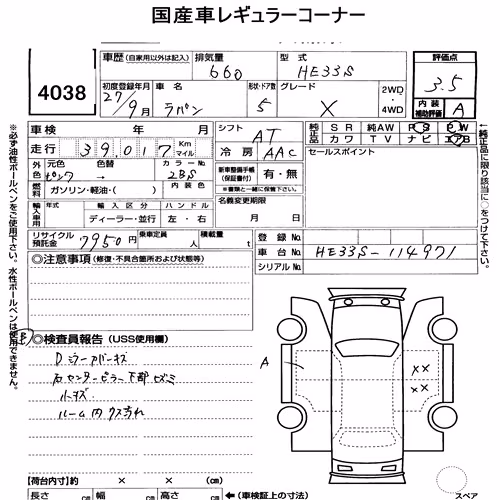 国産車レギュラーコーナー
4038
車歴 (自家用以外は記入) 排気量 660 型式 HE33S
評価点 3.5
内装補助評価 A
初度登録年月 27/9月 車名 ラパン 形状・ドア数 5 グレード X 2WD・4WD
車検 年 月 シフト AT
純正品 SR 純AW PS PW
純正品 カワ TV ナビ エアB
走行 39,017 Km マイル 冷房 AAC
セールスポイント
外色 元色 ピンク 色替 → カラーNo. 2BS
新車整備手帳(保証書付) 有・無
※書類と一緒に保管下さい。
燃料 ガソリン・軽油・( ) 内装色
名義変更期限 月 日
輸入車用 年式 輸入区分 ハンドル
ディーラー・並行 左・右
リサイクル預託金 7950円 乗車定員 人 積載量 t
登録No.
車台No. HE33S-114971
シリアルNo.
◎注意事項 (修復・不具合箇所および状態等)
◎検査員報告 (USS使用欄)
Dミラーアバーキズ
右センターピラー下部ヒズミ
小キズ
ルーム内クスミ汚れ
A
×× ××
【荷台内寸】約 × × (cm)
長さ cm 幅 cm 高さ cm ←(車検証上の寸法)
スペア
※必ず油性ボールペンをご使用下さい。水性ボールペンは使用できません。
↑純正品に限り該当に○をつけて下さい